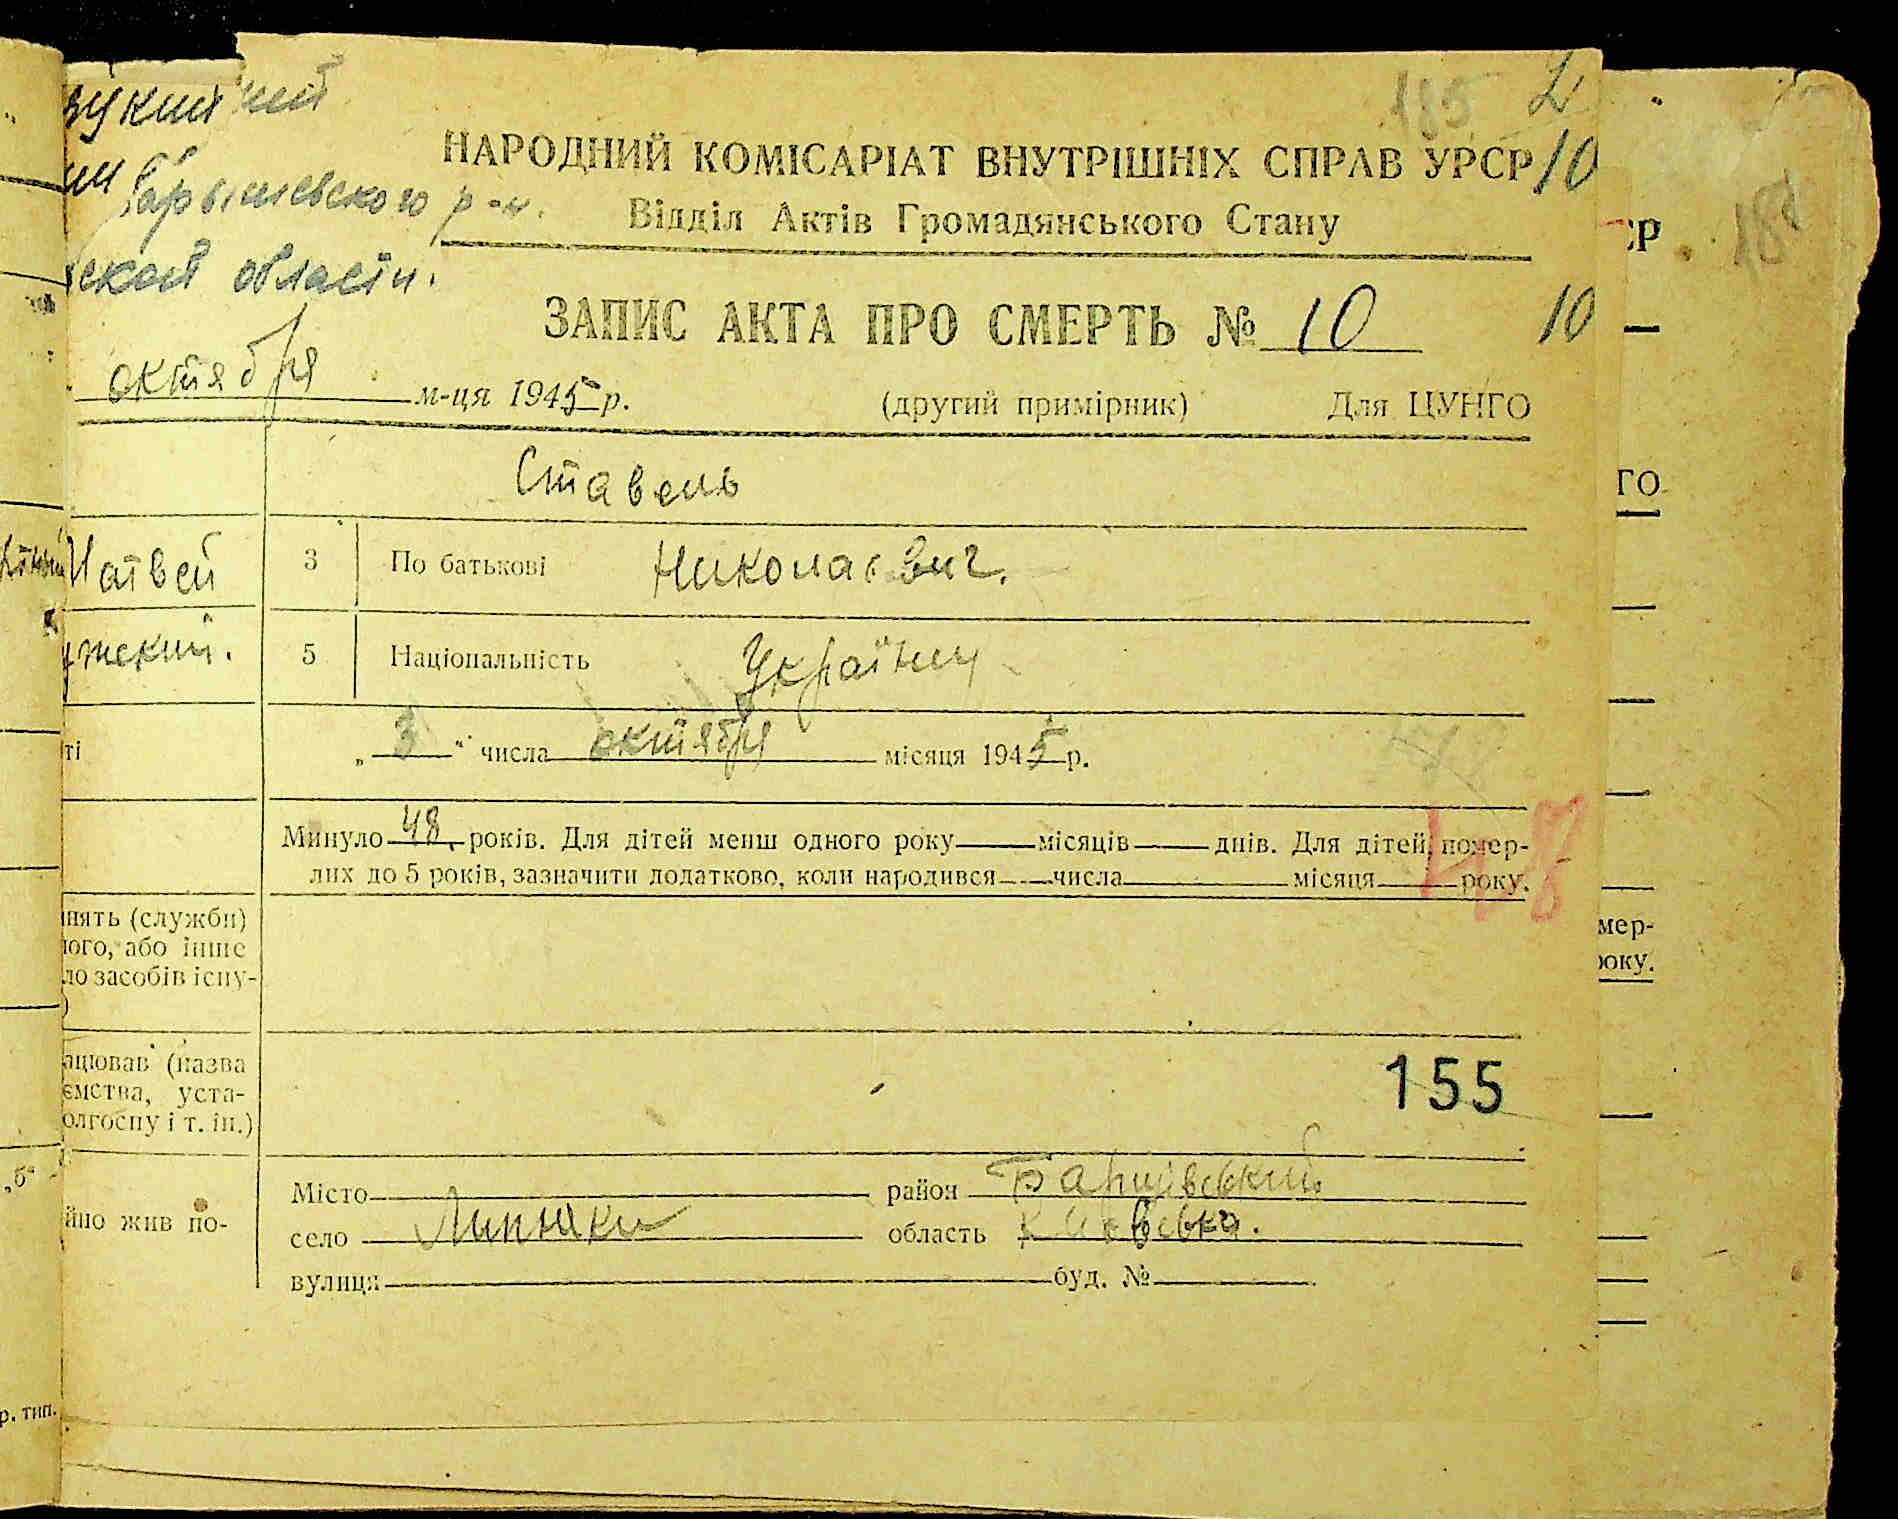 185
НАРОДНИЙ КОМІСАРІАТ ВНУТРІШНІХ СПРАВ УРСР 10
Барышевского р-н.
Відділ Актів Громадянського Стану
ской области.
ЗАПИС АКТА ПРО СМЕРТЬ № 10 10
октября м-ця 1945 р. (другий примірник) Для ЦУНГО
Ставень
Матвей 3 По батькові Николаевич.
ужский. 5 Національність Українец
ті „3“ числа октября місяця 1945 р.
Минуло 48 років. Для дітей менш одного року місяців днів. Для дітей, помер-
лих до 5 років, зазначити додатково, коли народився числа місяця року.
48
нять (служби)
ого, або інше
ло засобів існу-
)
ацював (назва
ємства, уста-
олгоспу і т. ін.)
155
Місто район Баришівський
йно жив по- село Липняки область Київська.
вулиця буд. №
р. тип.
„б“
СР
ГО
мер-
року.